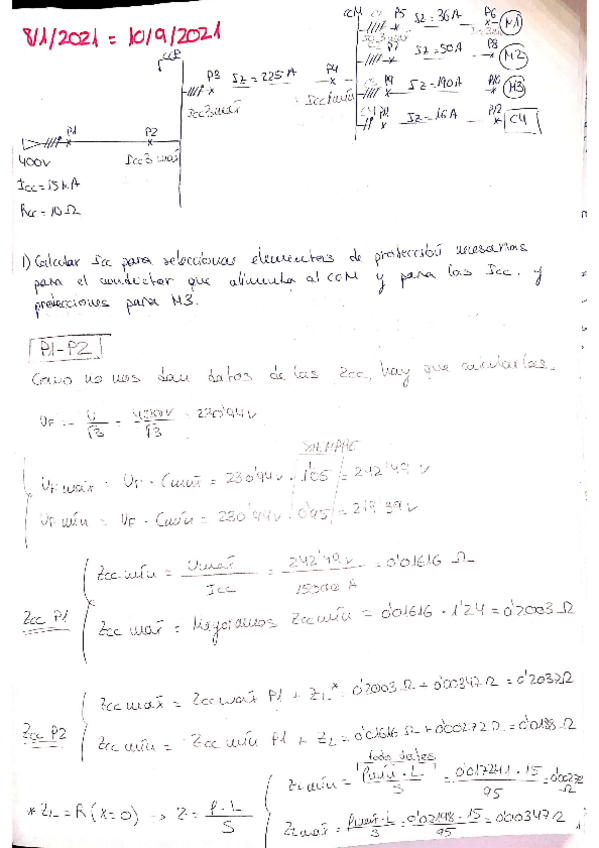 8/1/2021 = 10/9/2021
CCM P5 Iz = 36 A P6 M1
P7 Iz = 50 A P8 M2
P9 Iz = 140 A P10 M3
C4 P11 Iz = 16 A P12 C4
P3 Iz = 225 A P4
Icc3 máx Icc1 mín
P1 P2
400V Icc3 máx
Icc = 15 kA
Rcc = 10 Ω
1) Calcular Icc para seleccionar elementos de protección necesarias
para el conductor que alimenta al CCM y para las Icc. y
protecciones para M3.
P1-P2
Como no nos dan datos de las Zcc, hay que calcularlas.
UF = U/√3 = 400V/√3 = 230'94 V
SIEMPRE
UF máx = UF · Cmáx = 230'94 V · 1'05 = 242'49 V
UF mín = UF · Cmín = 230'94 V · 0'95 = 219'39 V
Zcc mín = Umáx/Icc = 242'49 V/15000 A = 0'01616 Ω
Zcc P1
Zcc máx = Mayoramos Zcc mín = 0'01616 · 1'24 = 0'2003 Ω
Zcc máx = Zcc máx P1 + ZL* 0'2003 Ω + 0'00347 Ω = 0'2037 Ω
Zcc P2
Zcc mín = Zcc mín P1 + ZL = 0'01616 Ω + 0'00272 Ω = 0'0188 Ω
Todo dates
ZL mín = ρmín · L/S = 0'017241 · 15/95 = 0'00272 Ω
* ZL = R (X=0) → Z = ρ · L/S
ZL máx = ρmáx · L/S = 0'02198 · 15/95 = 0'00347 Ω